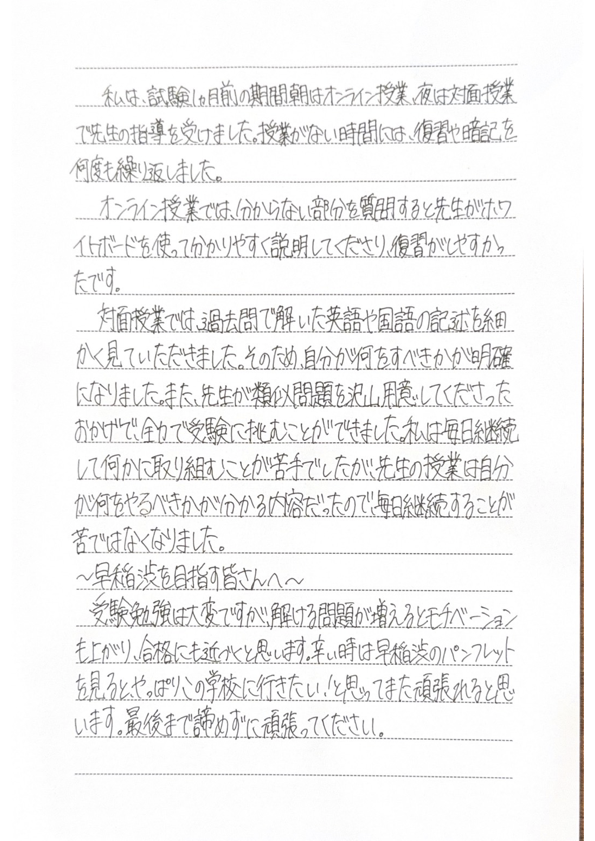 私は、試験1ヵ月前の期間朝はオンライン授業、夜は対面授業
で先生の指導を受けました。授業がない時間には、復習や暗記を
何度も繰り返しました。
オンライン授業では、分からない部分を質問すると先生がホワ
イトボードを使って分かりやすく説明してくださり、復習がしやすかっ
たです。
対面授業では、過去問で解いた英語や国語の記述を細
かく見ていただきました。そのため、自分が何をすべきかが明確
になりました。また、先生が類似問題を沢山用意してくださった
おかげで、全力で受験に挑むことができました。私は毎日継続
して何かに取り組むことが苦手でしたが、先生の授業は自分
が何をやるべきかが分かる内容だったので、毎日継続することが
苦ではなくなりました。
～早稲渋を目指す皆さんへ～
受験勉強は大変ですが、解ける問題が増えるとモチベーション
も上がり、合格にも近づくと思います。辛い時は早稲渋のパンフレット
を見ると、やっぱりこの学校に行きたい！と思ってまた頑張れると思
います。最後まで諦めずに頑張ってください。